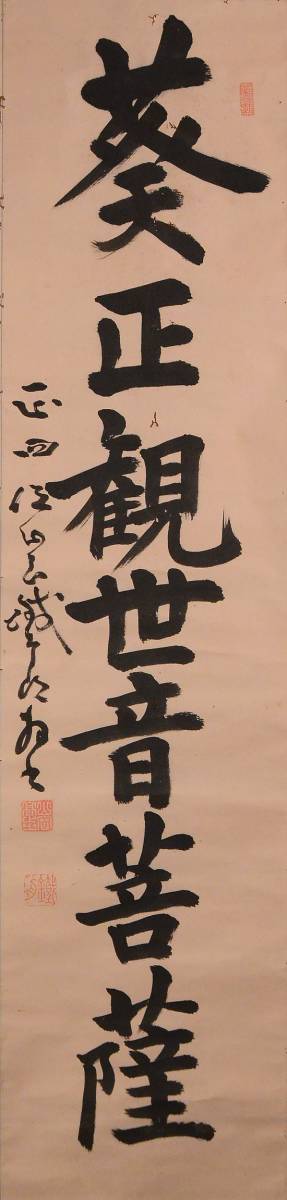 葵正観世音菩薩
正四位山岡鐵太郎書